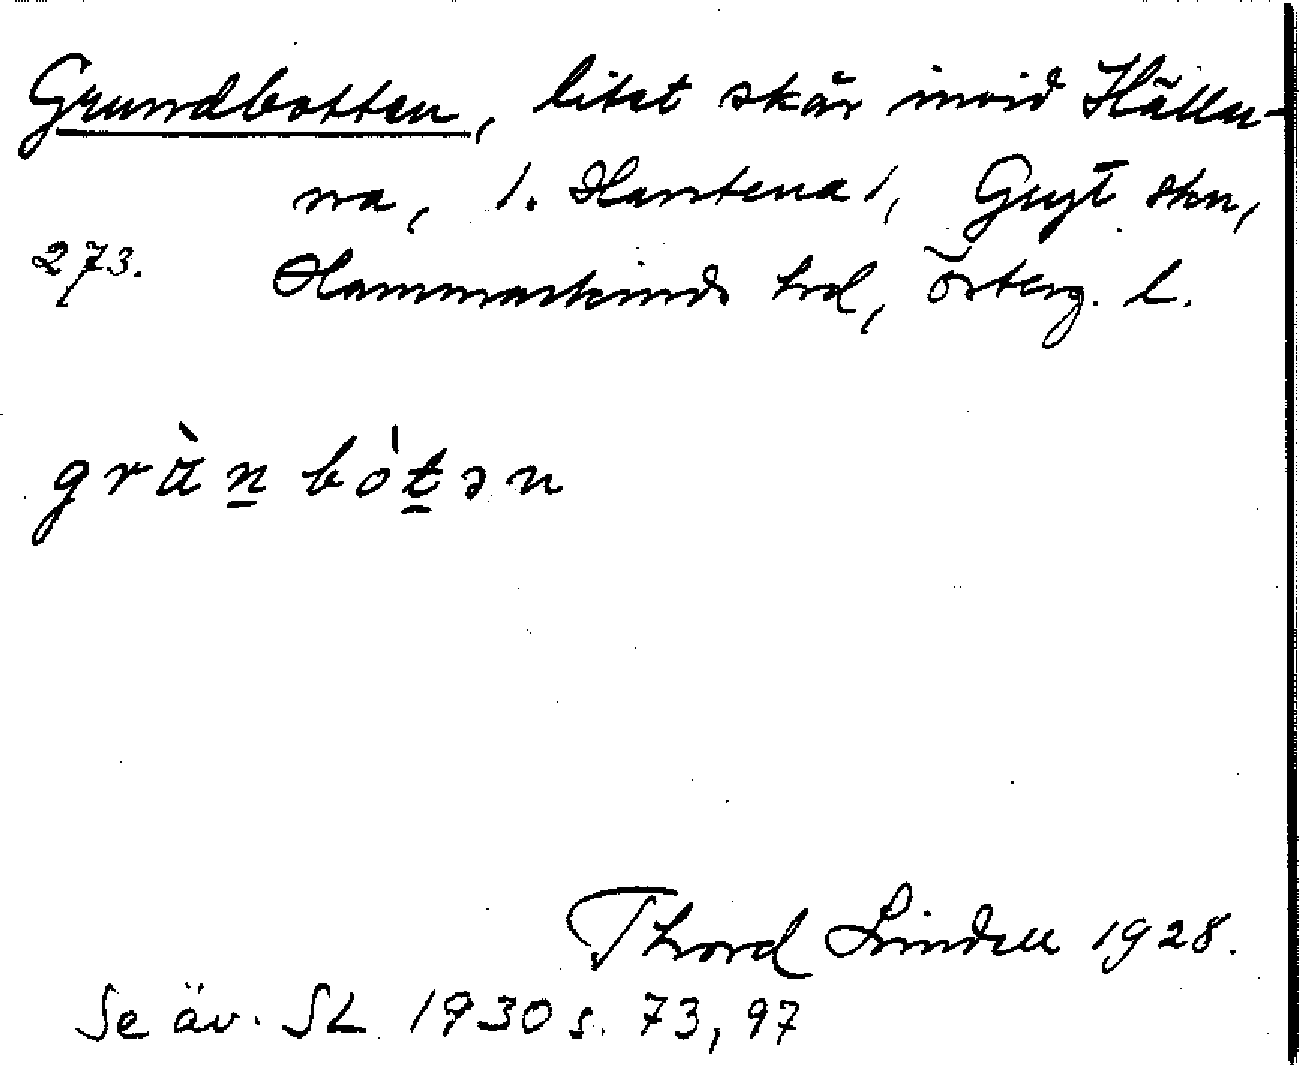 Grundbotten, litet skär invid Hällu-
na, 1. Hartena 1, Gryt skn,
273. Hammarkinds hrd, Österg. l.
grànbótən
Thord Lindell 1928.
Se äv. SL 1930 s. 73, 97